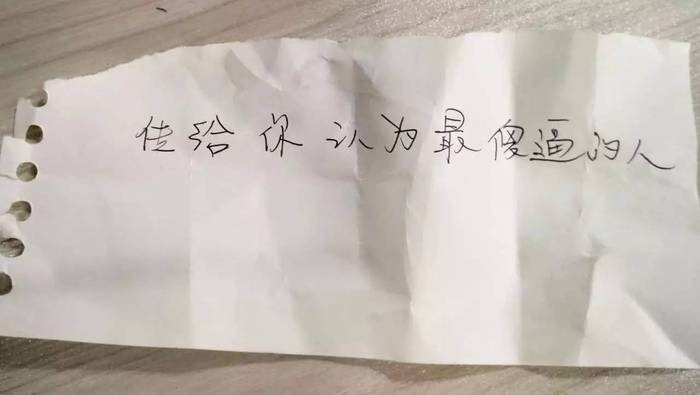 传给你认为最傻逼的人